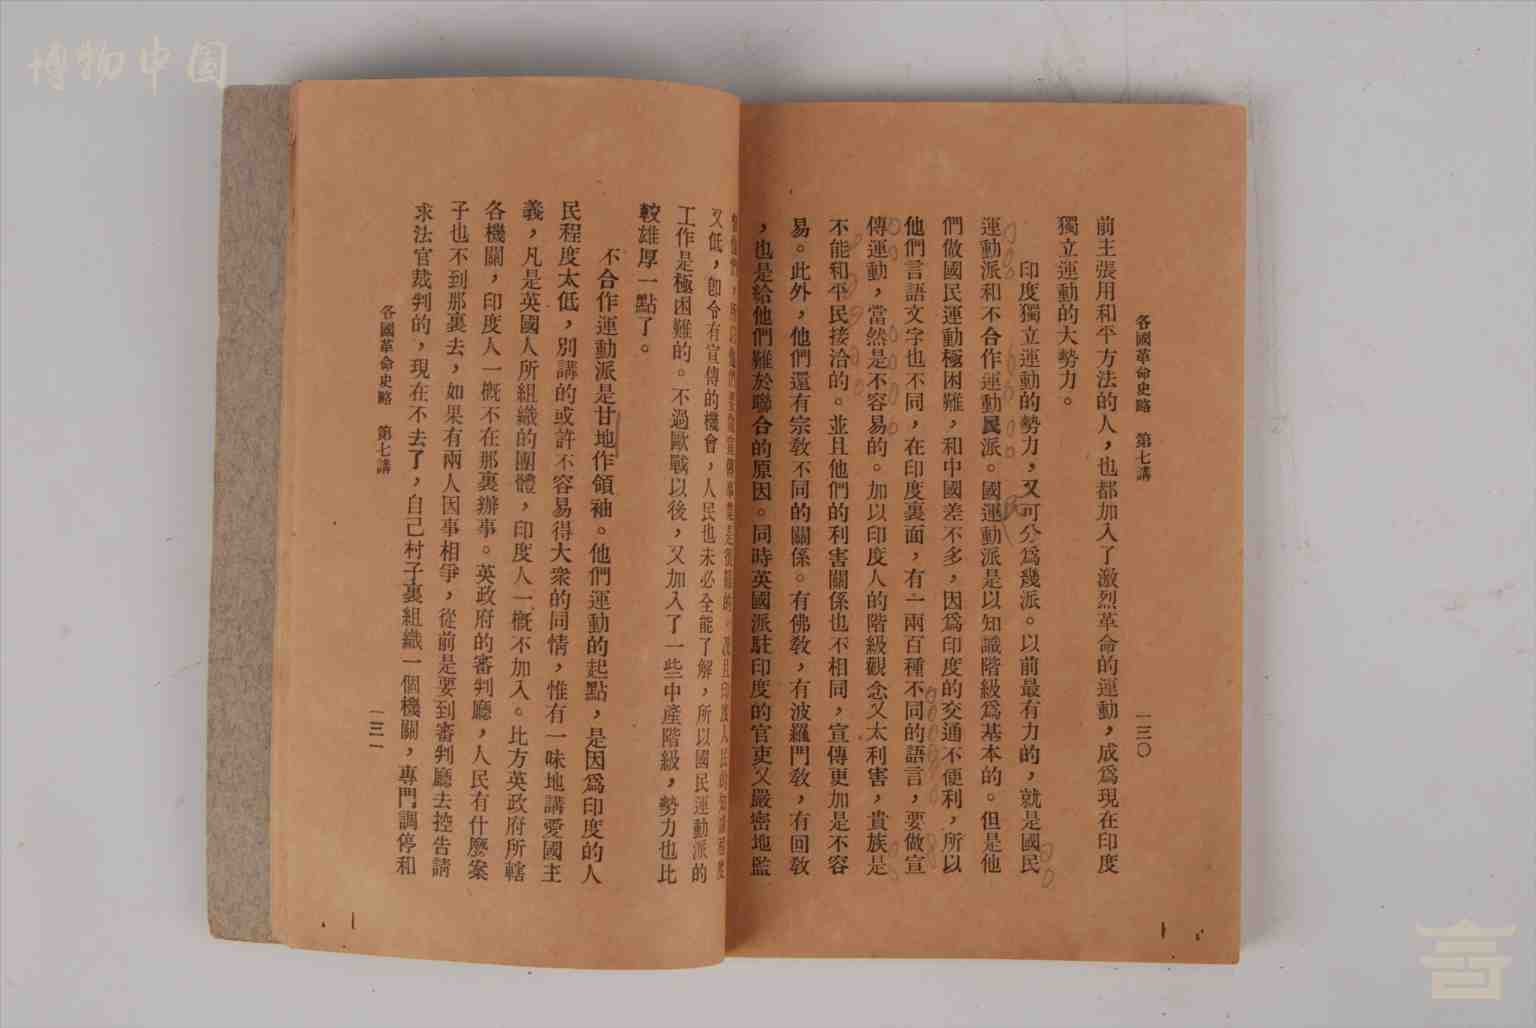 博物中国
各國革命史略 第七講 一三〇
前主張用和平方法的人，也都加入了激烈革命的運動，成爲現在印度
獨立運動的大勢力。
印度獨立運動的勢力，又可分爲幾派。以前最有力的，就是國民
運動派和不合作運動民派。國運動派是以知識階級爲基本的。但是他
們做國民運動極困難，和中國差不多，因爲印度的交通不便利，所以
他們言語文字也不同，在印度裏面，有一兩百種不同的語言，要做宣
傳運動，當然是不容易的。加以印度人的階級觀念又太利害，貴族是
不能和平民接洽的。並且他們的利害關係也不相同，宣傳更加是不容
易。此外，他們還有宗敎不同的關係。有佛敎，有波羅門敎，有回敎
，也是給他們難於聯合的原因。同時英國派駐印度的官吏又嚴密地監
又低，卽令有宣傳的機會，人民也未必全能了解，所以國民運動派的
工作是極困難的。不過歐戰以後，又加入了一些中產階級，勢力也比
較雄厚一點了。
不合作運動派是甘地作領袖。他們運動的起點，是因爲印度的人
民程度太低，別講的或許不容易得大衆的同情，惟有一味地講愛國主
義，凡是英國人所組織的團體，印度人一概不加入。比方英政府所轄
各機關，印度人一概不在那裏辦事。英政府的審判廳，人民有什麼案
子也不到那裏去，如果有兩人因事相爭，從前是要到審判廳去控告請
求法官裁判的，現在不去了，自己村子裏組織一個機關，專門調停和
各國革命史略 第七講 一三一